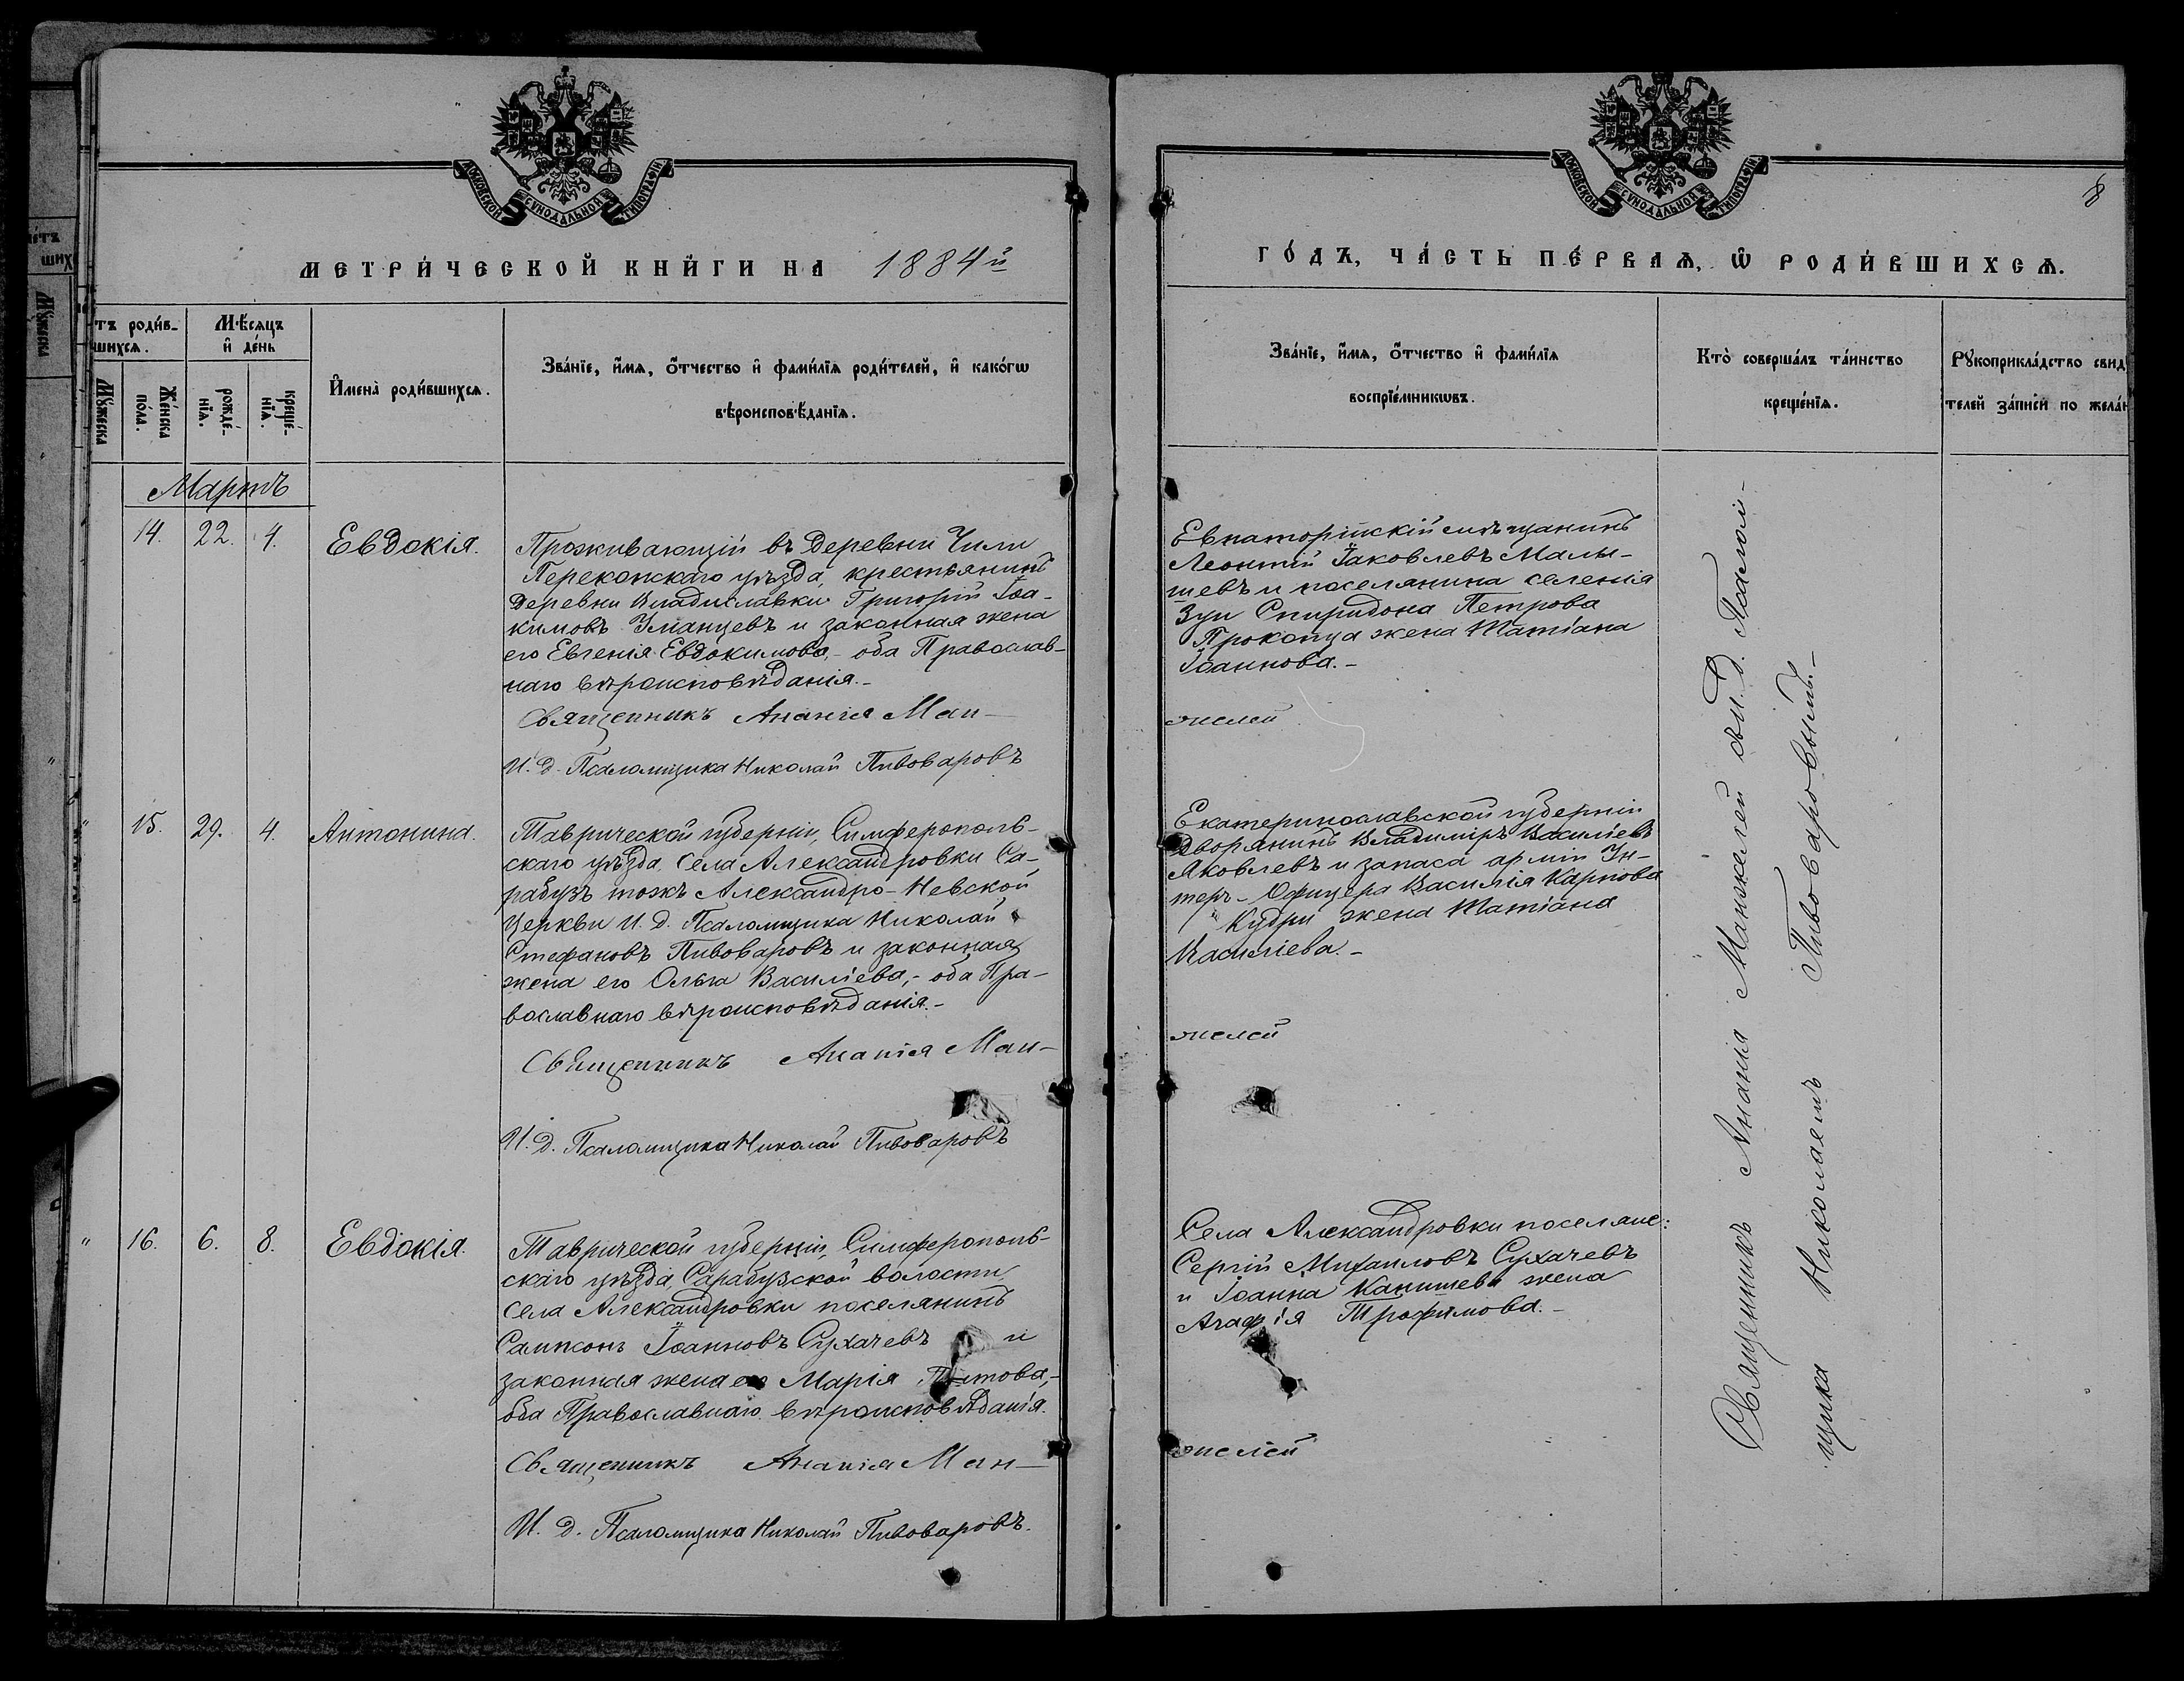 МОСКОВСКОЙ СѴНОДАЛЬНОЙ ТИПОГРАФІИ
МЕТРИ́ЧЕСКОЙ КНИ́ГИ НА 1884й
тъ роди́в-
шихсѧ.
Мѣ́сѧцъ
и҆ де́нь
Мꙋ́жеска
Же́нска
по́ла.
рожде́-
нїѧ.
креще́-
нїѧ.
И҆мена̀ роди́вшихсѧ.
Зва́нїе, и҆́мѧ, ѻ҆́тчество и҆ фами́лїѧ роди́телей, и҆ како́гѡ
вѣроисповѣ́данїѧ.
Мартъ
14. 22. 4. Евдокія.
Проживающій въ деревни Чили
Перекопскаго уѣзда, крестьянинъ
деревни Владиславки Григорій Іоа-
кимовъ Уманцевъ и законная жена
его Евгенія Евдокимова,- оба Православ-
наго вѣроисповѣданія.-
Священникъ Ананія Ман-
И. д. Псаломщика Николай Пивоваровъ
" 15. 29. 4. Антонина.
Таврической губерніи, Симферополь-
скаго уѣзда, села Александровки Са-
рабузъ тожъ Александро-Невской
церкви И. д. Псаломщика Николай
Стефановъ Пивоваровъ и законная
жена его Ольга Василіева,- оба Пра-
вославнаго вѣроисповѣданія.-
Священникъ Ананія Ман-
И. д. Псаломщика Николай Пивоваровъ
" 16. 6. 8. Евдокія.
Таврической губерніи, Симферополь-
скаго уѣзда, Сарабузской волости
села Александровки поселянинъ
Сампсонъ Іоанновъ Сухачевъ и
законная жена его Марія Титова,-
оба Православнаго вѣроисповѣданія.
Священникъ Ананія Ман-
И. д. Псаломщика Николай Пивоваровъ.
МОСКОВСКОЙ СѴНОДАЛЬНОЙ ТИПОГРАФІИ
8
ГО́ДЪ, ЧА́СТЬ ПЕ́РВАѦ, Ѡ҆ РОДИ́ВШИХСѦ.
Зва́нїе, и҆́мѧ, ѻ҆́тчество и҆ фами́лїѧ
воспрїе́мникѡвъ.
Кто̀ соверша́лъ та́инство
креще́нїѧ.
Рꙋкоприкла́дство свид
телей за́писи по жела́н
Евпаторійскій мѣщанинъ
Леонтій Іаковлевъ Малы-
шевъ и поселянина селенія
Зуи Спиридона Петрова
Прокопца жена Татіана
Іоаннова.-
желей
Екатеринославской губерніи
дворянинъ Владиміръ Василіевъ
Яковлевъ и запаса арміи Ун-
теръ-Офицера Василія Карпова
Кудри жена Татіана
Василіева.-
желей
Села Александровки поселяне:
Сергій Михаиловъ Сухачевъ
и Іоанна Канишева жена
Агафія Трофимова.-
желей
Священникъ Ананія Манжелей съ И. д. Псалом-
щика Николаемъ Пивоваровымъ.-